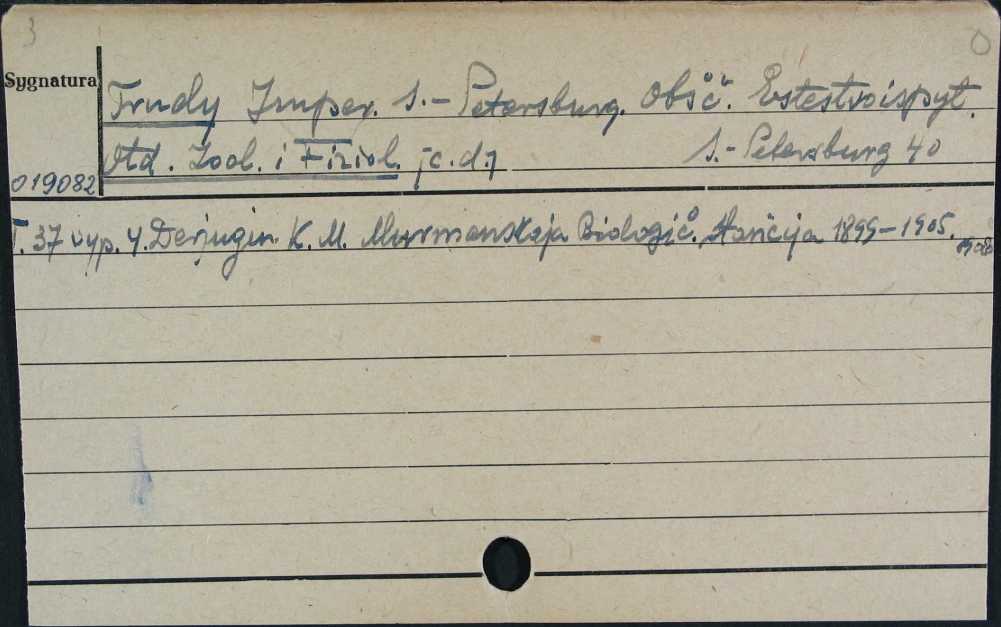 3
0
Sygnatura
Trudy Imper. S.- Petersburg. Obšč. Estestvoispyt.
Otd. Zool. i Fiziol. [c.d.]
S.-Petersburg 40
019082
T. 37 vyp. 4. Derjugin K. M. Murmanskaja Biologič. Stancija 1899-1905.
1906